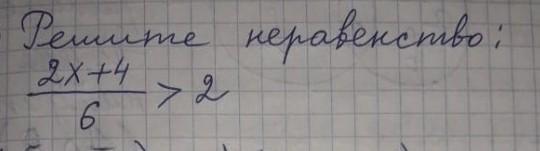 Решите неравенство:
\frac{2x+4}{6} > 2